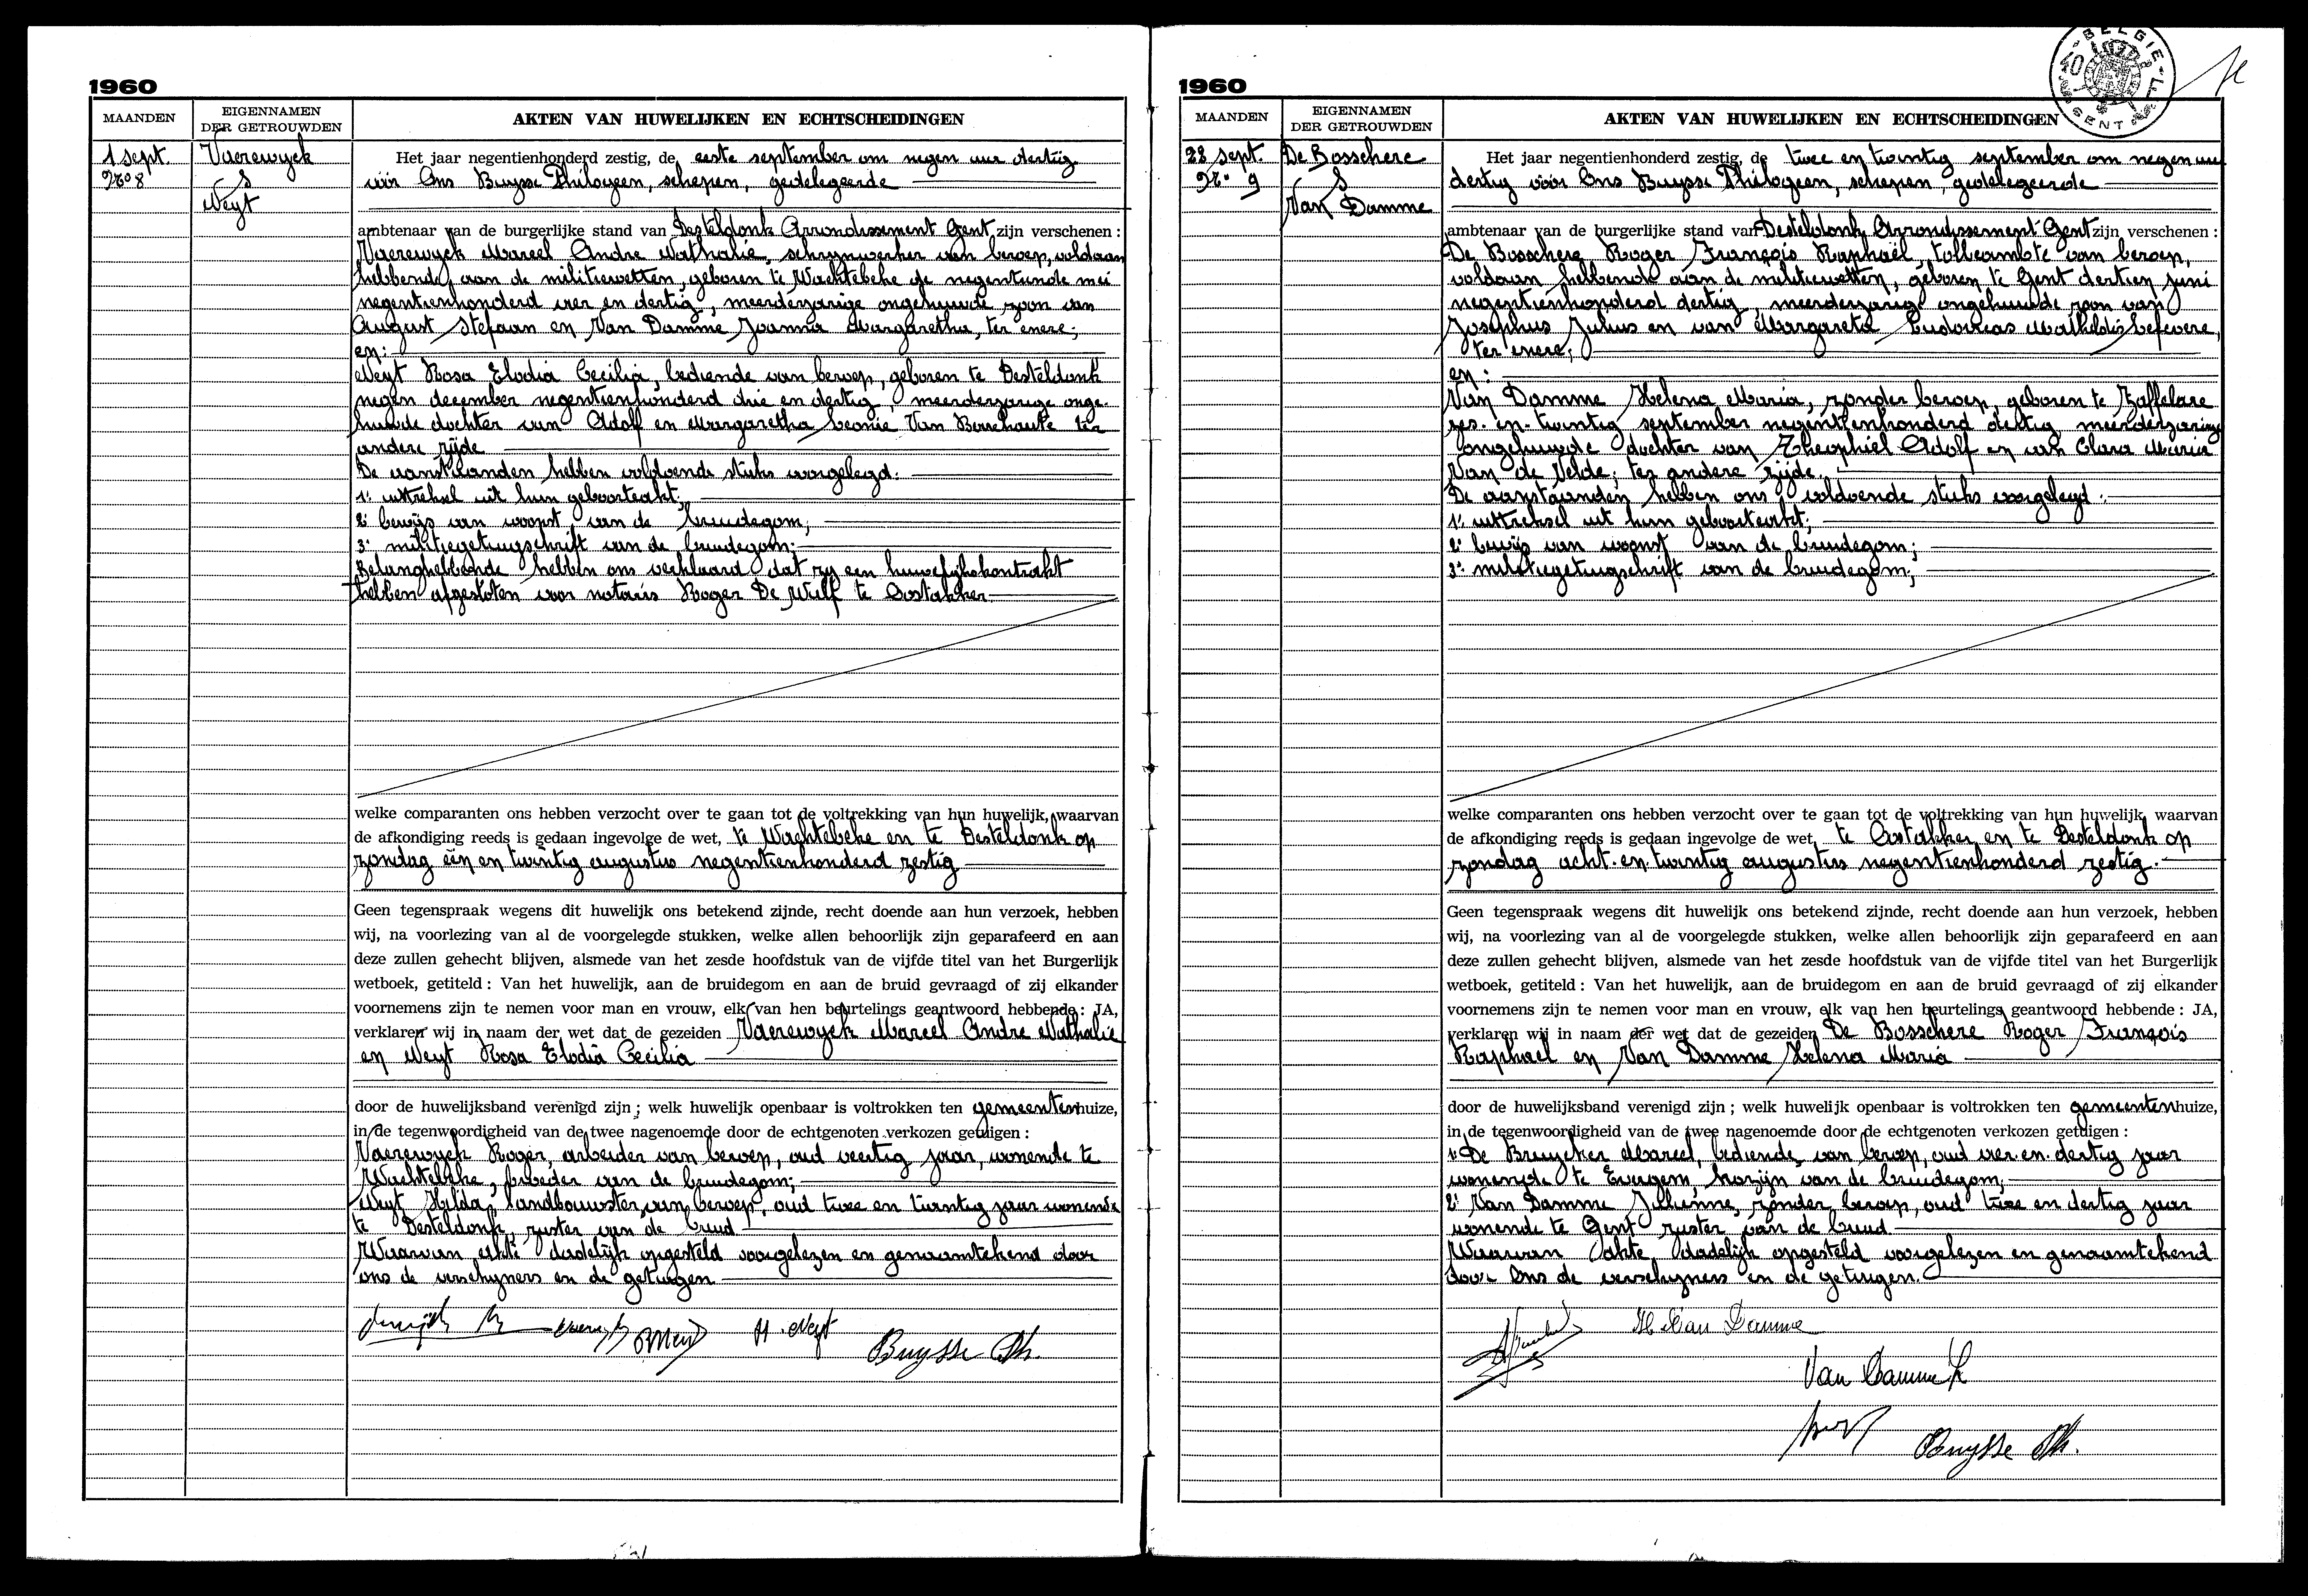 1960
MAANDEN
EIGENNAMEN
DER GETROUWDEN
AKTEN VAN HUWELIJKEN EN ECHTSCHEIDINGEN
1 sept.
Nr 8
Vaerewyck
&
Neyt
Het jaar negentienhonderd zestig, de eerste september om negen uur dertig
vóór Ons Buysse Philogeen, schepen, gedelegeerde
ambtenaar van de burgerlijke stand van Desteldonk Arrondissement Gent zijn verschenen :
Vaerewyck Marcel Andre Nathalie, schrynwerker van beroep, voldaan
hebbende aan de militiewetten, geboren te Wachtebeke de negentiende mei
negentienhonderd vier en dertig, meerderjarige ongehuwde zoon van
August Stefaan en Van Damme Joanna Margaretha, ter enere;
en:
Neyt Rosa Elodia Cecilia, bediende van beroep, geboren te Desteldonk
negen december negentienhonderd drie en dertig, meerderjarige onge-
huwde dochter van Adolf en Margaretha Leonie Van Bouchaute ter
andere zijde
De aanstaanden hebben voldoende stuks voorgelegd:
1° uittreksel uit hun geboorteakt;
2° bewijs van woonst van de bruidegom;
3° militiegetuigschrift van de bruidegom;
Belanghebbende hebben ons verklaard dat zy een huwelijkskontrakt
hebben afgesloten voor notaris Roger De Wulf te Oostakker
welke comparanten ons hebben verzocht over te gaan tot de voltrekking van hun huwelijk, waarvan
de afkondiging reeds is gedaan ingevolge de wet, te Wachtebeke en te Desteldonk op
zondag één en twintig augustus negentienhonderd zestig
Geen tegenspraak wegens dit huwelijk ons betekend zijnde, recht doende aan hun verzoek, hebben
wij, na voorlezing van al de voorgelegde stukken, welke allen behoorlijk zijn geparafeerd en aan
deze zullen gehecht blijven, alsmede van het zesde hoofdstuk van de vijfde titel van het Burgerlijk
wetboek, getiteld : Van het huwelijk, aan de bruidegom en aan de bruid gevraagd of zij elkander
voornemens zijn te nemen voor man en vrouw, elk van hen beurtelings geantwoord hebbende : JA,
verklaren wij in naam der wet dat de gezeiden Vaerewyck Marcel Andre Nathalie
en Neyt Rosa Elodia Cecilia
door de huwelijksband verenigd zijn ; welk huwelijk openbaar is voltrokken ten gemeentenhuize,
in de tegenwoordigheid van de twee nagenoemde door de echtgenoten verkozen getuigen :
Vaerewyck Roger, arbeider van beroep, oud veertig jaar, wonende te
Wachtebeke, broeder van de bruidegom;
Neyt Hilda, landbouwster van beroep, oud twee en twintig jaar wonende
te Desteldonk, zuster van de bruid
Waarvan akte dadelijk opgesteld voorgelezen en genaamtekend door
ons de verschyners en de getuigen
H. Neyt
Buysse Ph.
1960
MAANDEN
EIGENNAMEN
DER GETROUWDEN
AKTEN VAN HUWELIJKEN EN ECHTSCHEIDINGEN
BELGIE
GENT
22 sept.
Nr. 9
De Bosschere
&
Van Damme
Het jaar negentienhonderd zestig, de twee en twintig september om negen uur
dertig vóór Ons Buysse Philogeen, schepen, gedelegeerde
ambtenaar van de burgerlijke stand van Desteldonk Arrondissement Gent zijn verschenen :
De Bosschere Roger François Raphaël, tolbeambte van beroep,
voldaan hebbende aan de militiewetten, geboren te Gent dertien juni
negentienhonderd dertig, meerderjarige ongehuwde zoon van
Josephus Julius en van Margareta Eudoxias Mathildis Lefevere,
ter enere;
en :
Van Damme Helena Maria, zonder beroep, geboren te Zaffelare
zes. en. twintig september negentienhonderd dertig meerderjarige
ongehuwde dochter van Theophiel Adolf en van Clara Maria
Van de Velde; ter andere zijde.
De aanstaanden hebben ons voldoende stuks voorgelegd :
1° uittreksel uit hun geboorteakt;
2° bewijs van woonst van de bruidegom;
3° militiegetuigschrift van de bruidegom;
welke comparanten ons hebben verzocht over te gaan tot de voltrekking van hun huwelijk, waarvan
de afkondiging reeds is gedaan ingevolge de wet, te Oostakker en te Desteldonk op
zondag acht. en. twintig augustus negentienhonderd zestig.
Geen tegenspraak wegens dit huwelijk ons betekend zijnde, recht doende aan hun verzoek, hebben
wij, na voorlezing van al de voorgelegde stukken, welke allen behoorlijk zijn geparafeerd en aan
deze zullen gehecht blijven, alsmede van het zesde hoofdstuk van de vijfde titel van het Burgerlijk
wetboek, getiteld : Van het huwelijk, aan de bruidegom en aan de bruid gevraagd of zij elkander
voornemens zijn te nemen voor man en vrouw, elk van hen beurtelings geantwoord hebbende : JA,
verklaren wij in naam der wet dat de gezeiden De Bosschere Roger François
Raphael en Van Damme Helena Maria
door de huwelijksband verenigd zijn ; welk huwelijk openbaar is voltrokken ten gemeentenhuize,
in de tegenwoordigheid van de twee nagenoemde door de echtgenoten verkozen getuigen :
1° De Bruycker Marcel, bediende van beroep, oud vier. en. dertig jaar
wonende te Evergem, kozijn van de bruidegom;
2° Van Damme Julienne, zonder beroep, oud twee en dertig jaar
wonende te Gent zuster van de bruid
Waarvan akte dadelijk opgesteld voorgelezen en genaamtekend
door Ons de verschyners en de getuigen.
H Van Damme
Van Damme J
Buysse Ph.